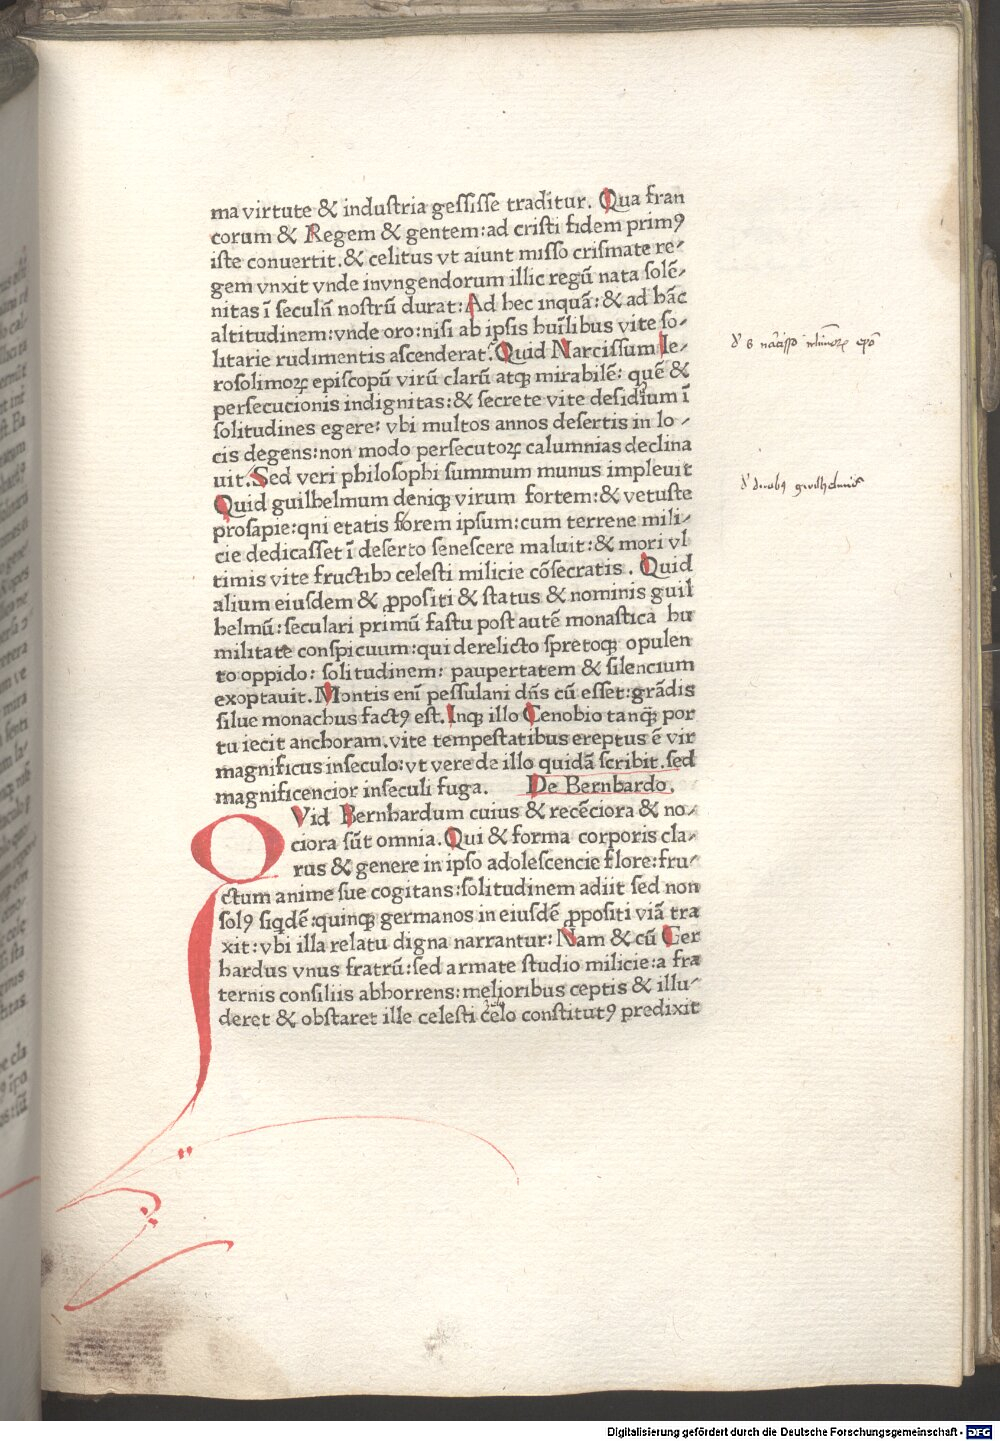 ma virtute & induſtria geſſiſſe traditur. Qua fran
corum & Regem & gentem: ad criſti fidem primꝰ
iſte conuertit. & celitus vt aiunt miſſo criſmate re⸗
gem vnxit vnde invngendorum illic regū nata ſolē⸗
nitas ī ſeculū noſtrū durat: Ad hec inquā: & ad hāc
altitudinem: vnde oro: niſi ab ipſis huīlibus vite ſo⸗
litarie rudimentis aſcenderat. Quid Narciſſum Ie⸗
roſolimoꝝ epiſcopū virū clarū atqꝫ mirabilē: quē &
perſecucionis indignitas: & ſecrete vite deſidium ī
ſolitudines egere: vbi multos annos deſertis in lo⸗
cis degens: non modo perſecutoꝝ calumnias declina
uit. Sed veri philoſophi ſummum munus impleuit
Quid guilhelmum deniqꝫ virum fortem: & vetuſte
proſapie: qni etatis florem ipſum: cum terrene mili⸗
cie dedicaſſet ī deſerto ſeneſcere maluit: & mori vl
timis vite fructibꝫ celeſti milicie cōſecratis. Quid
alium eiuſdem & ꝓpoſiti & ſtatus & nominis guil
helmū: ſeculari primū faſtu poſt autē monaſtica hu
militate conſpicuum: qui derelicto ſpretoqꝫ opulen
to oppido: ſolitudinem: paupertatem & ſilencium
exoptauit. Montis enī peſſulani dn̄s cū eſſet: grādis
ſilue monachus factꝰ eſt. Inqꝫ illo Cenobio tanqꝫ por
tu iecit anchoram. vite tempeſtatibus ereptus ē vir
magnificus inſeculo: vt vere de illo quidā ſcribit. ſed
magnificencior inſeculi fuga. De Bernhardo.
QVid Bernhardum cuius & recēciora & no⸗
ciora ſūt omnia. Qui & forma corporis cla⸗
rus & genere in ipſo adoleſcencie flore: fru⸗
ctum anime ſue cogitans: ſolitudinem adiit ſed non
ſolꝰ ſiqdē: quinqꝫ germanos in eiuſdē ꝓpoſiti viā tra
xit: vbi illa relatu digna narrantur: Nam & cū Ger
hardus vnus fratrū: ſed armate ſtudio milicie: a fra
ternis conſiliis abhorrens: melioribus ceptis & illu⸗
deret & obſtaret ille celeſti celo conſtitutꝰ predixit
Digitalisierung gefördert durch die Deutsche Forschungsgemeinschaft - DFG